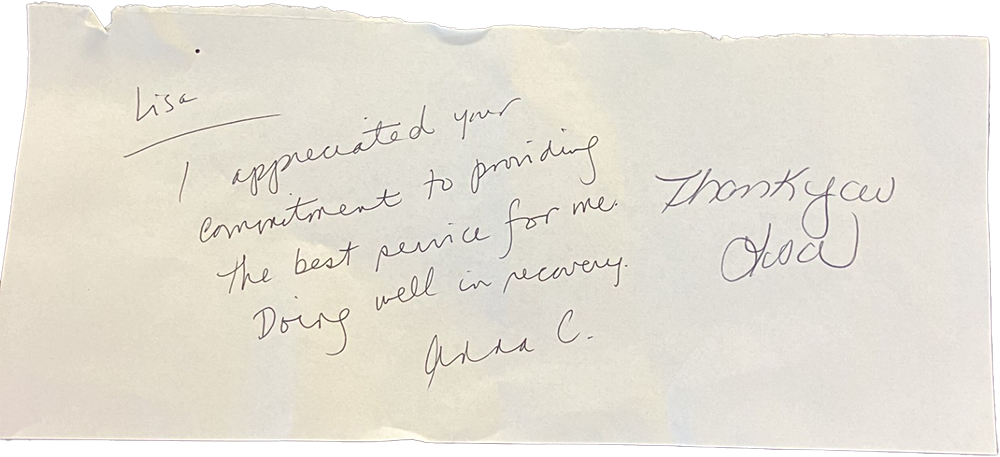 Lisa
I appreciated your
commitment to providing
the best service for me.
Doing well in recovery.
Anna C.
Thank you
Lisa